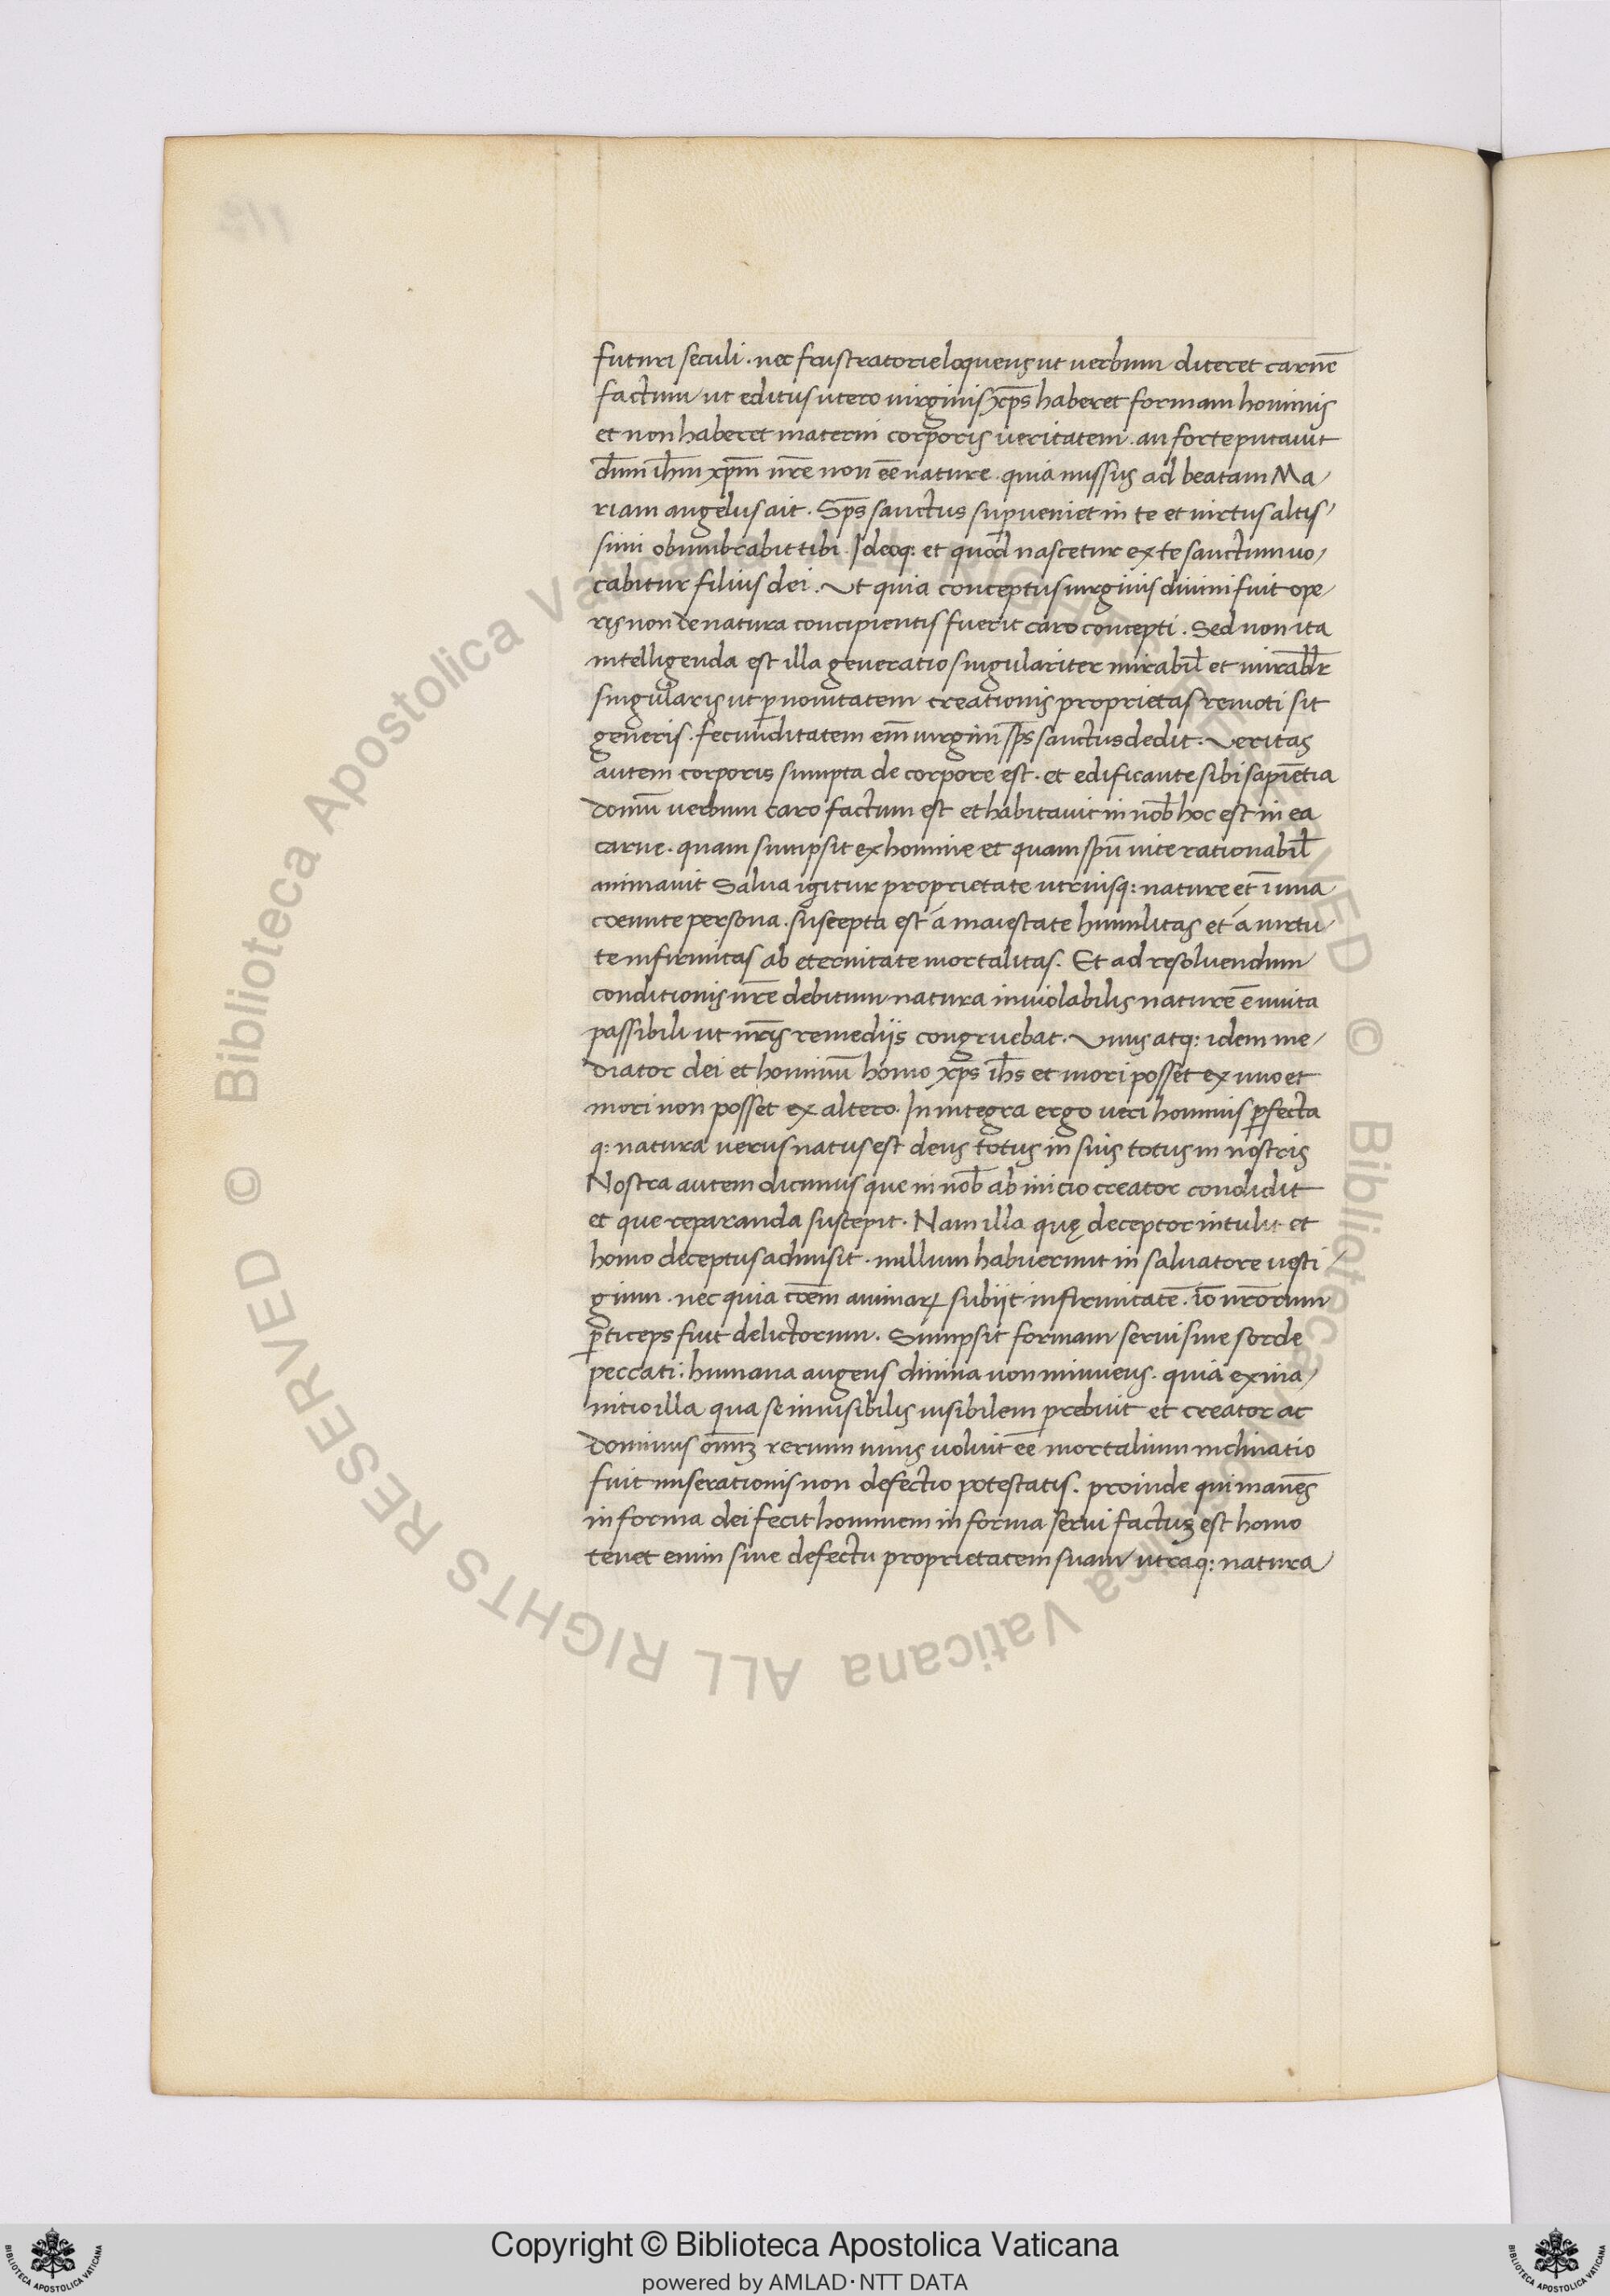 futuri seculi. nec frustratorie loquens ut uerbum diceret carnē
factum ut editus utero uirginis xp̄s haberet formam hominis
et non haberet materni corporis ueritatem. an forte putauit
dn̄m ih̄m xp̄m nr̄e non ēe nature. quia missus ad beatam Ma/
riam angelus ait. Sp̄s sanctus sup̱ueniet in te et uirtus altis/
simi obumbrabit tibi. Ideoq: et quod nascetur ex te sanctum uo/
cabitur filius dei. Ut quia conceptus uirginis diuini fuit ope/
ris non de natura concipientis fuerit caro concepti. Sed non ita
intelligenda est illa generatio singulariter mirabil̄ et mirabl̄r
singularis ut p̱ nouitatem creationis proprietas remoti sit
generis. fecunditatem em̄ uirgini sp̄s sanctus dedit: Veritas
autem corporis sumpta de corpore est. et edificante sibi sapiētia
domū uerbum caro factum est et habitauit in nob̄ hoc est in ea
carne. quam sumpsit ex homine et quam spū uite rationabil̄
animauit Salua igitur proprietate utriusq: nature et ī una
coeunte persona. suscepta est á maiestate humilitas et á uirtu/
te infirmitas ab eternitate mortalitas. Et ad resoluendum
conditionis nr̄e debitum natura inuiolabilis nature ē unita
passibili ut nr̄is remediis congruebat. Unus atq: idem me/
diator dei et hominū homo xp̄s ih̄s et mori posset ex uno et
mori non posset ex altero. In integra ergo ueri hominis p̱fecta
q: natura uerus natus est deus totus in suis totus in nostris
Nostra autem dicimus que in nob̄ ab inicio creator condidit
et que reparanda suscepit. Nam illa quę deceptor intulit et
homo deceptus admisit. nullum habuerunt in saluatore uesti/
gium. nec quia cōem animaꝝ subiit infirmitatē. iō nr̄orum
p̱ticeps fuit delictorum. Sumpsit formam serui sine sorde
peccati: humana augens diuina non minuens. quia exina/
nitio illa qua se inuisibilis uisibilem prebuit et creator ac
dominus omīuꝫ rerum unus uoluit ēe mortalium inclinatio
fuit miserationis non defectio potestatis. proinde qui manēs
in forma dei fecit hominem in forma serui factus est homo
tenet enim sine defectu proprietatem suam utraq: natura
Copyright © Biblioteca Apostolica Vaticana
powered by AMLAD·NTT DATA
© Biblioteca Apostolica Vaticana ALL RIGHTS RESERVED © Biblioteca Apostolica Vaticana ALL RIGHTS RESERVED